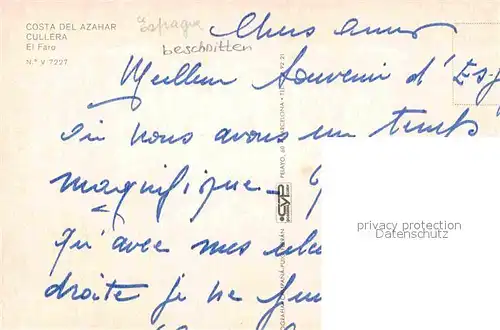 COSTA DEL AZAHAR
CULLERA
El Faro
N.º V 7227
Espagne
beschnitten
Chers amis
Meilleur Souvenir d'Es
nous avons un temps
magnifique
qu'avec mes
droite je ne
PELAYO, 60 BARCELONA
CYP
privacy protection
Datenschutz